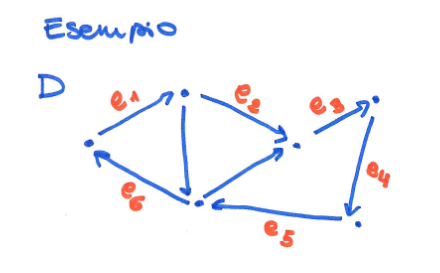 Esempio
D
e1 e2 e3
e4
e6 e5